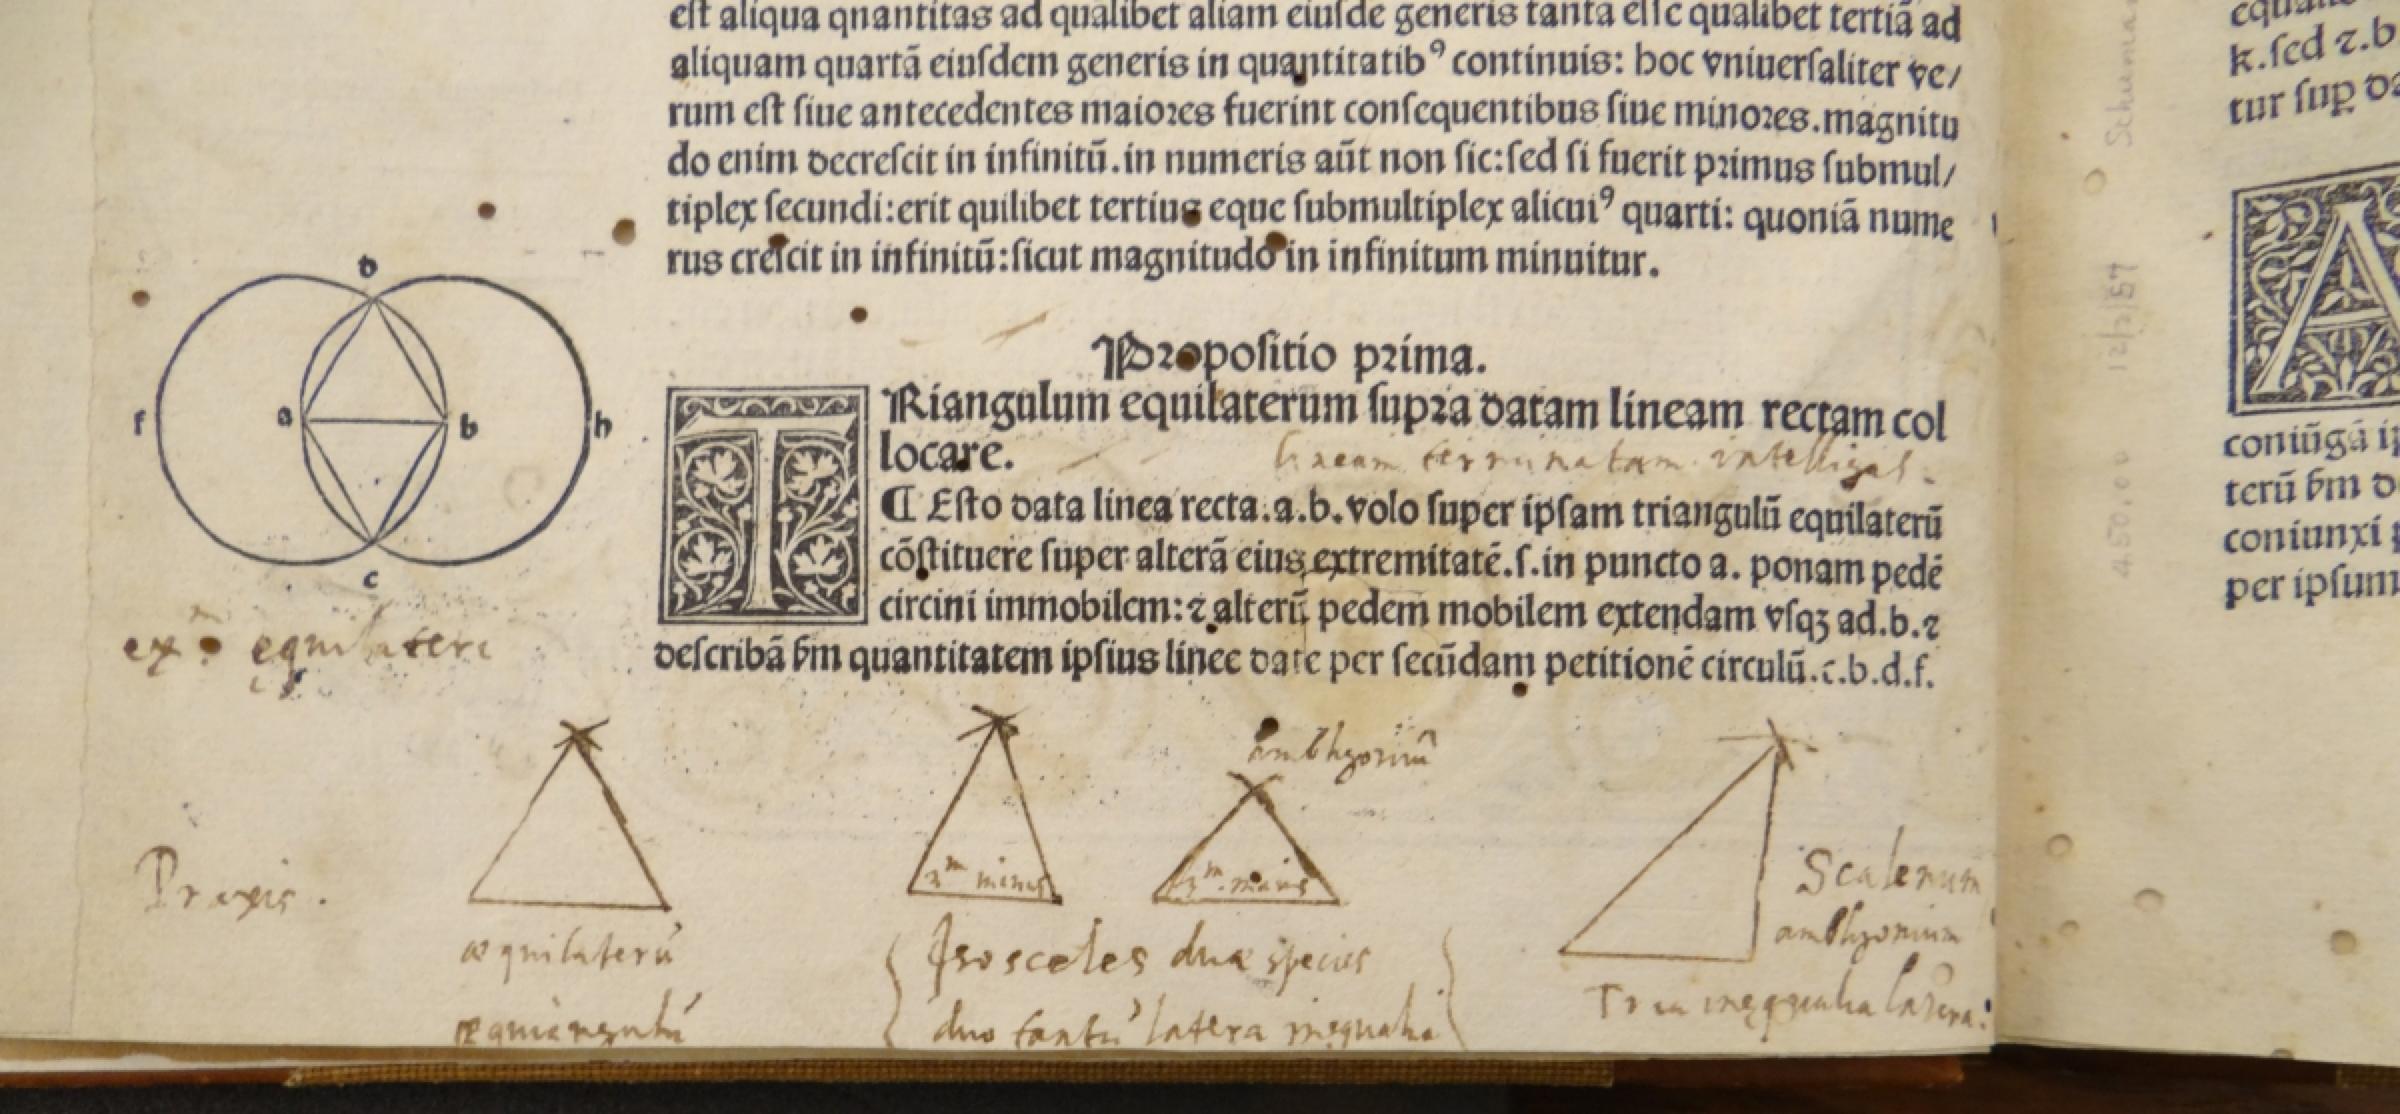 est aliqua qnantitas ad qualibet aliam eiusdē generis tanta esse qualibet tertiā ad
aliquam quartā eiusdem generis in quantitatibꝰ continuis: hoc vniuersaliter ve/
rum est siue antecedentes maiores fuerint consequentibus siue minores.magnitu
do enim decrescit in infinitū.in numeris aūt non sic:sed si fuerit primus submul/
tiplex secundi:erit quilibet tertius eque submultiplex alicuiꝰ quarti: quoniā nume
rus crescit in infinitū:sicut magnitudo in infinitum minuitur.
Propositio prima.
TRiangulum equilaterum supra datam lineam rectam col
locare.
lineam terminatam intelligas.
¶ Esto data linea recta.a.b.volo super ipsam triangulū equilaterū
cōstituere super alterā eius extremitatē.s.in puncto a. ponam pedē
circini immobilem:⁊ alterū pedem mobilem extendam vsqꝫ ad.b.⁊
describā ẜm quantitatem ipsius linee date per secūdam petitionē circulū.c.b.d.f.
d
f a b h
c
exm equilateri
Praxis.
æquilaterū
æquiangulū
3m minus
amblygoniū
3m. maius
Isosceles duæ species
duo tantū latera inequalia
Scalenum
amblygonium
Tria inequalia latera.
Schuman
12/2/57
450.00
equali
k.sed ⁊.b
tur sup̱ d
A
coniūgā
terū ẜm d
coniunxi
per ipsum